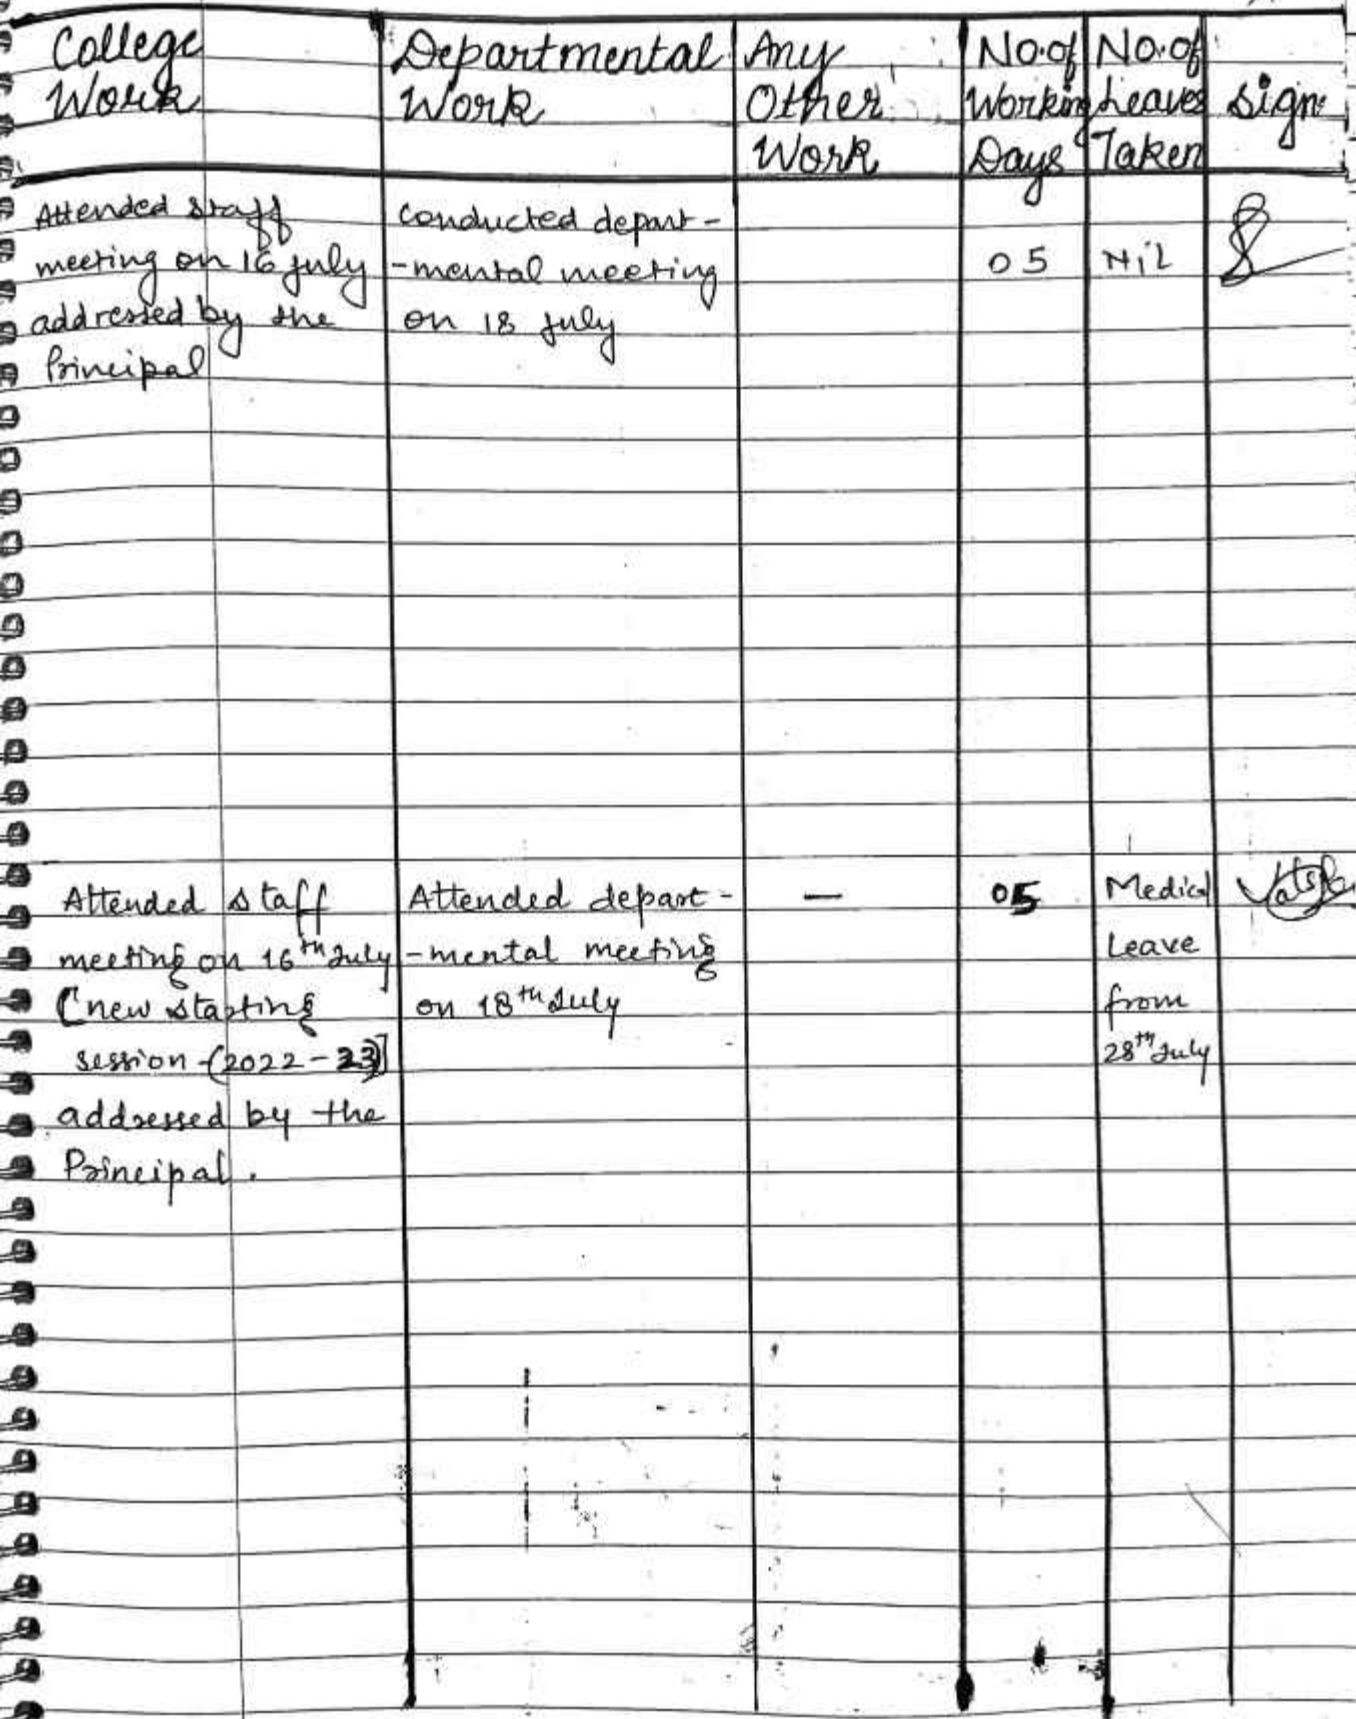 College
Work
Departmental
Work
Any
Other
Work
No. of
Working
Days
No. of
Leaves
Taken
Sign
Attended staff
meeting on 16 July
addressed by the
Principal
Conducted depart-
-mental meeting
on 18 July
05
Nil
Attended staff
meeting on 16th July
(new starting
session-(2022-23)]
addressed by the
Principal.
Attended depart-
-mental meeting
on 18th July
—
05
Medical
Leave
from
28th July